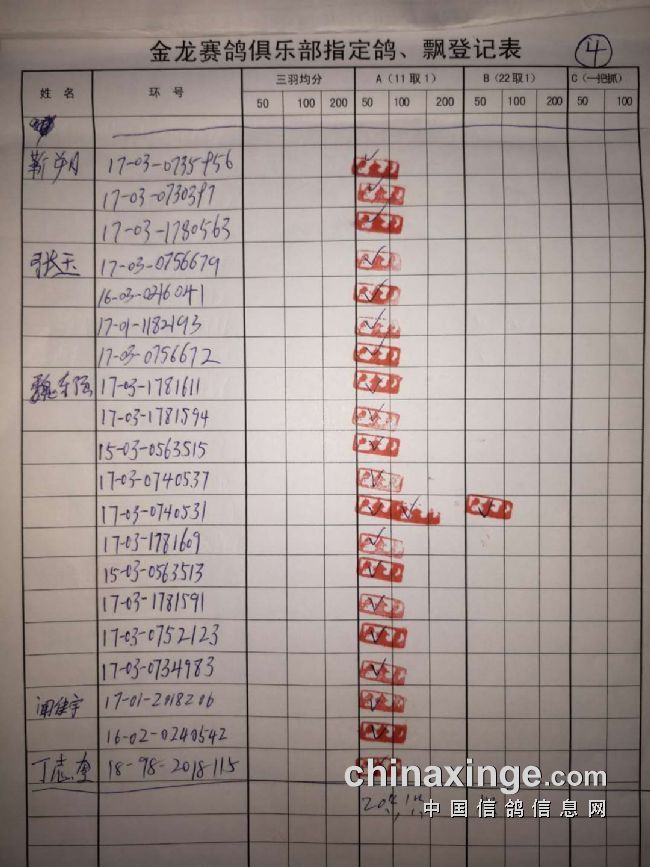 金龙赛鸽俱乐部指定鸽、飘登记表 4
姓 名 环 号 三羽均分 A (11取1) B (22取1) C (一把抓)
50 100 200 50 100 200 50 100 200 50 100
17-03-0735956
17-03-0730397
17-03-1780563
张玉 17-03-0756679
16-03-0216041
17-01-1182193
17-03-0756672
魏东强 17-03-1781611
17-03-1781594
15-03-0563515
17-03-0740537
17-03-0740531
17-03-1781609
15-03-0563513
17-03-1781591
17-03-0752123
17-03-0734983
闻继宇 17-01-2018206
16-02-0240542
丁志奎 18-98-2018-115
chinaxinge.com
中国信鸽信息网